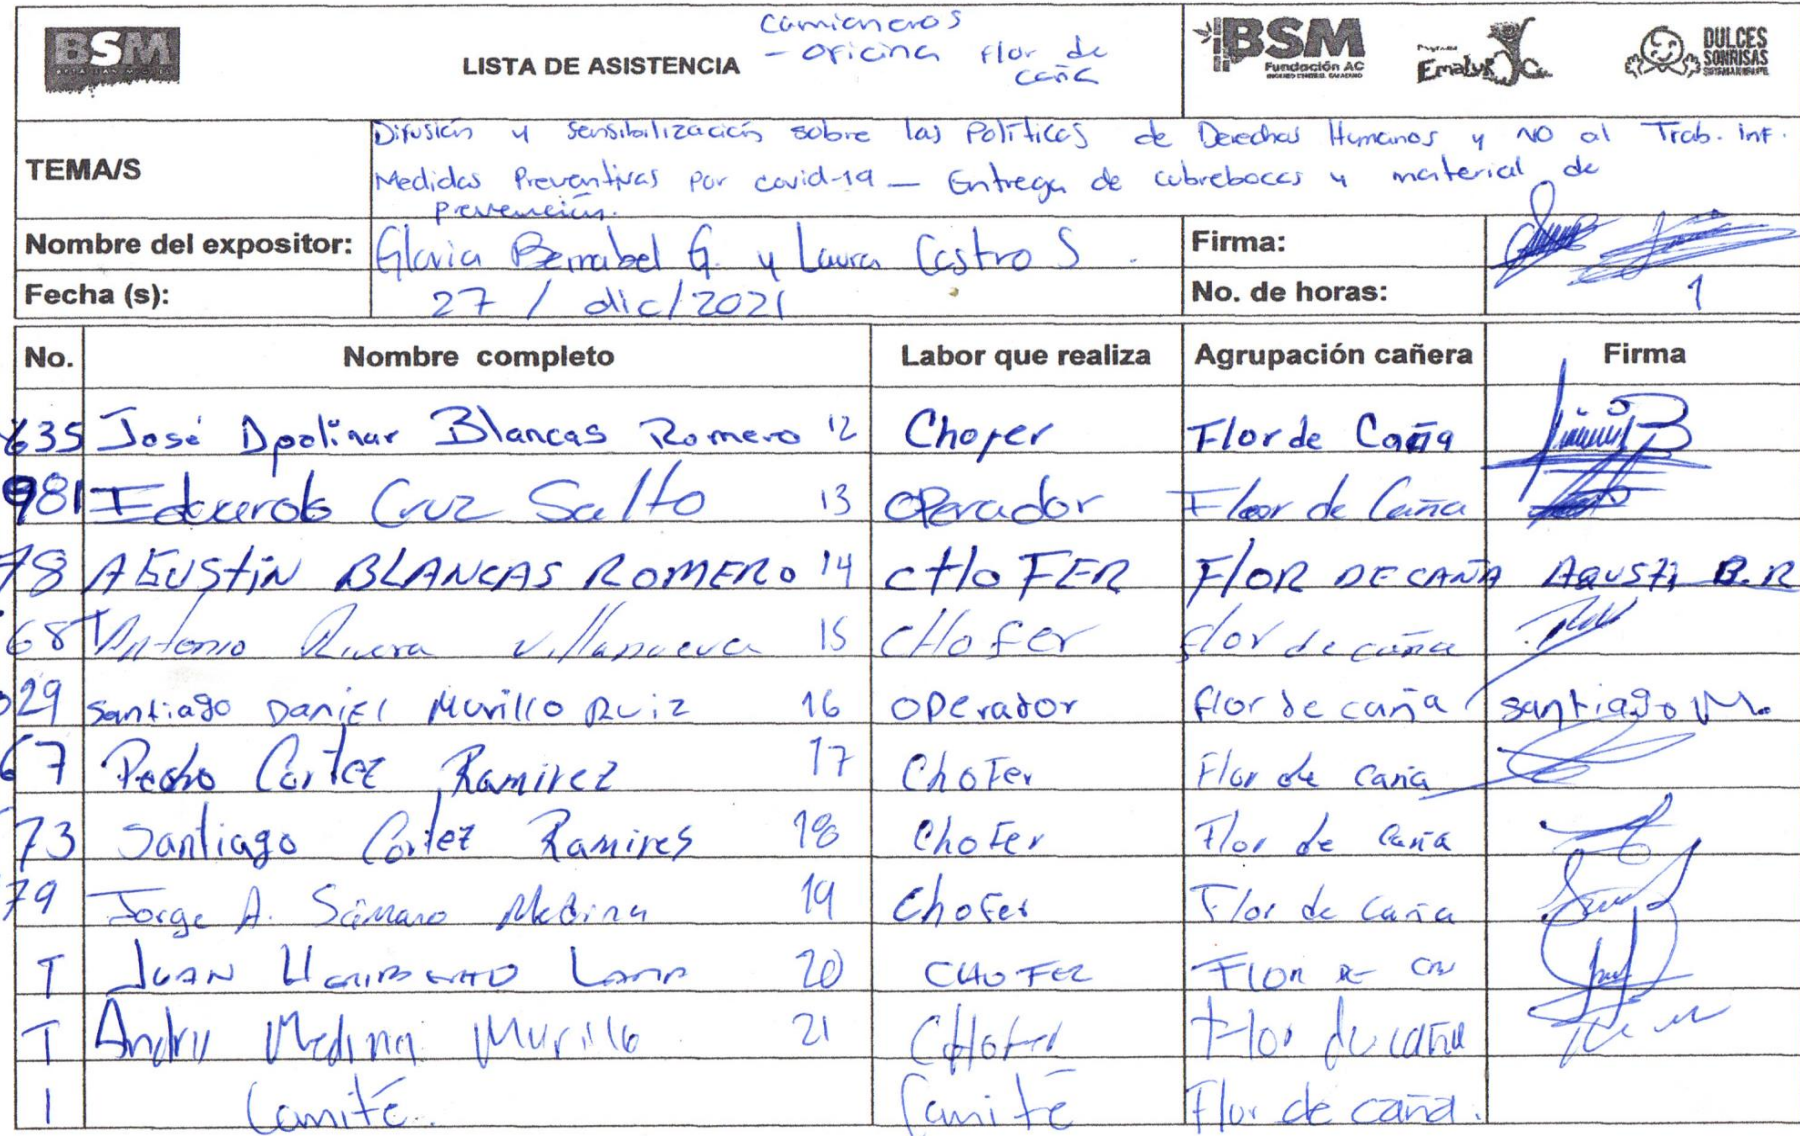 BSM
LISTA DE ASISTENCIA
Camioneros
- oficina Flor de
caña
BSM
Fundación AC
DULCES
SONRISAS
TEMA/S
Difusión y Sensibilización sobre las Políticas de Derechos Humanos y NO al Trab. inf.
Medidas Preventivas por covid-19 — Entrega de cubrebocas y material de
prevención.
Nombre del expositor: Gloria Bernabel G. y Laura Castro S.
Firma:
Fecha (s): 27 / dic/2021
No. de horas: 1
No. Nombre completo Labor que realiza Agrupación cañera Firma
635 José Apolinar Blancas Romero 12 Chofer Flor de Caña
981 Cruz Salto 13 OPerador Flor de Caña
78 AGUSTIN BLANCAS ROMERO 14 CHOFER FLOR DE CAÑA AGUSTI B.R
68 Antonio Rivera Villanueva 15 CHofer flor de caña
029 Santiago DANIEL Murillo Ruiz 16 OPerador flor de caña santiago M.
67 Pedro Cortez Ramirez 17 Chofer Flor de Caña
73 Santiago Cortez Ramires 18 Chofer Flor de Caña
79 Jorge A. Sámano Medina 19 Chofer Flor de Caña
T JUAN HERIBERTO 20 CHOFER FLOR DE
T Medina Murillo 21 CHofer Flor de caña
1 Comité. Comité Flor de caña.